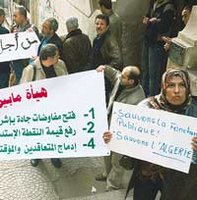 من أجل
هيأة مابين
1- فتح مفاوضات جادة
2- رفع قيمة النقطة
4- إدماج المتعاقدين
- Sauvons la Fonction
Publique!
- Sauvons L'ALGERIE